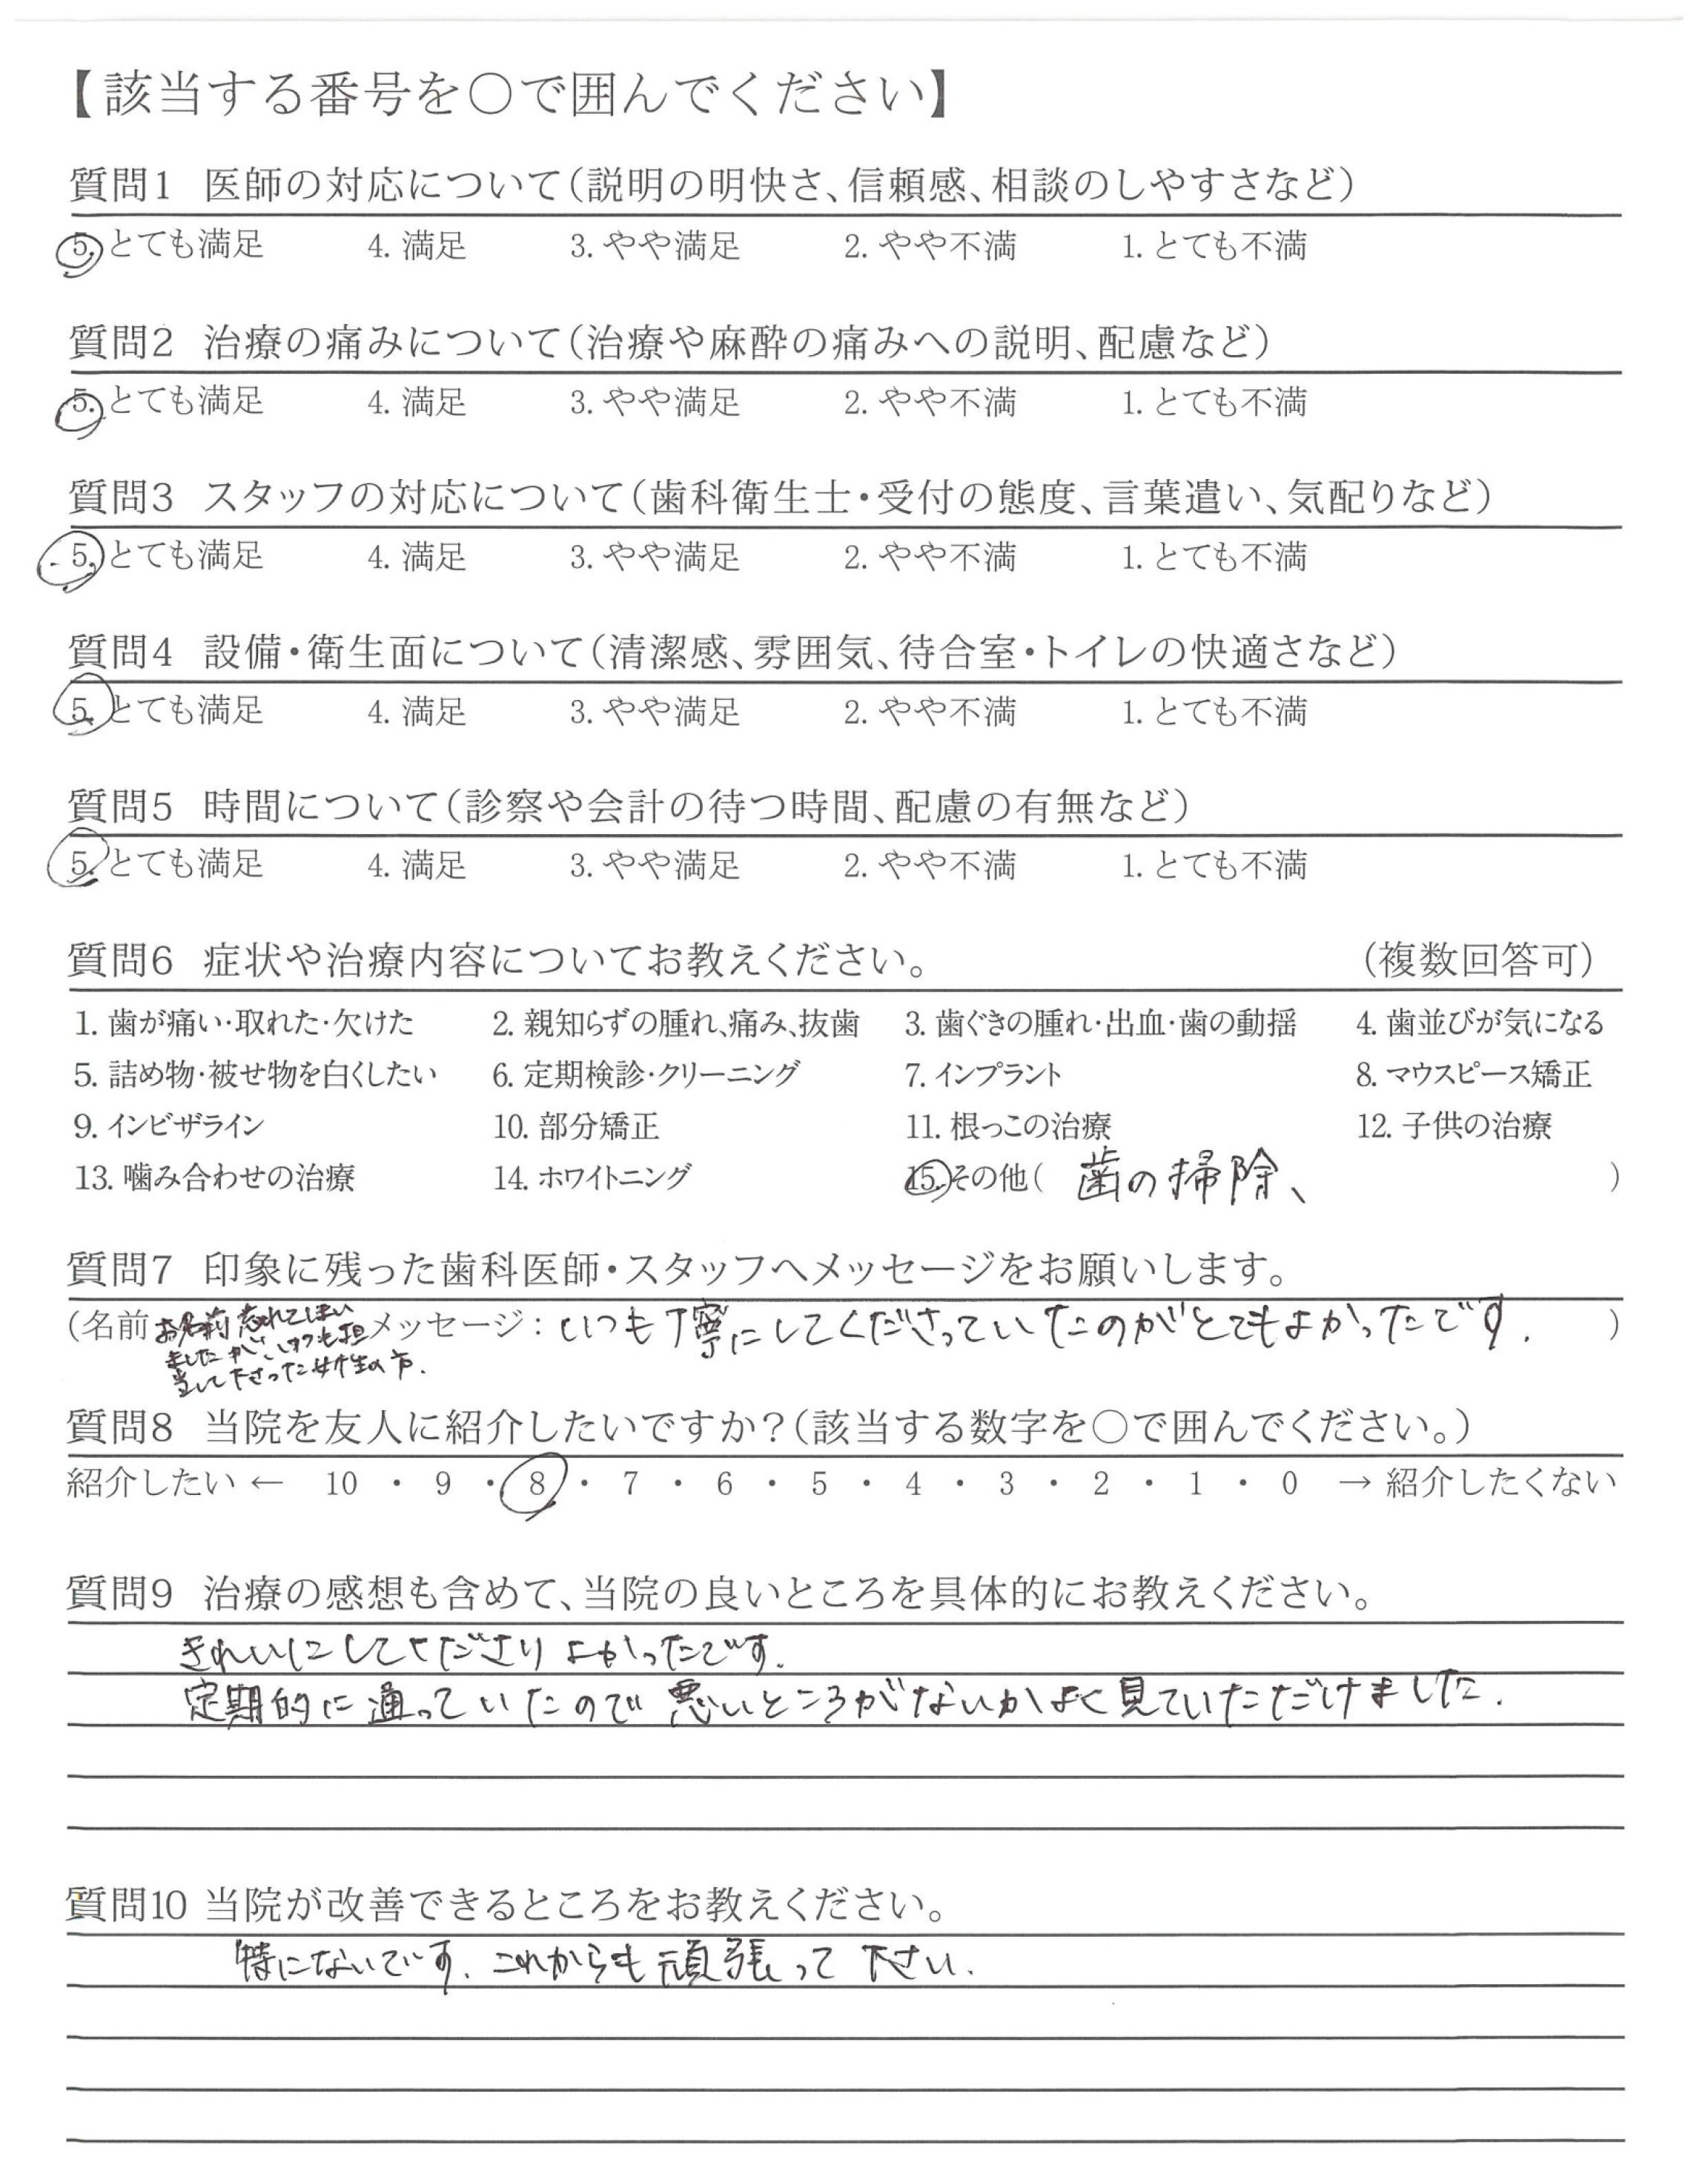 【該当する番号を○で囲んでください】
質問1 医師の対応について(説明の明快さ、信頼感、相談のしやすさなど)
5. とても満足 4. 満足 3. やや満足 2. やや不満 1. とても不満
質問2 治療の痛みについて(治療や麻酔の痛みへの説明、配慮など)
5. とても満足 4. 満足 3. やや満足 2. やや不満 1. とても不満
質問3 スタッフの対応について(歯科衛生士・受付の態度、言葉遣い、気配りなど)
5. とても満足 4. 満足 3. やや満足 2. やや不満 1. とても不満
質問4 設備・衛生面について(清潔感、雰囲気、待合室・トイレの快適さなど)
5. とても満足 4. 満足 3. やや満足 2. やや不満 1. とても不満
質問5 時間について(診察や会計の待つ時間、配慮の有無など)
5. とても満足 4. 満足 3. やや満足 2. やや不満 1. とても不満
質問6 症状や治療内容についてお教えください。 (複数回答可)
1. 歯が痛い・取れた・欠けた 2. 親知らずの腫れ、痛み、抜歯 3. 歯ぐきの腫れ・出血・歯の動揺 4. 歯並びが気になる
5. 詰め物・被せ物を白くしたい 6. 定期検診・クリーニング 7. インプラント 8. マウスピース矯正
9. インビザライン 10. 部分矯正 11. 根っこの治療 12. 子供の治療
13. 噛み合わせの治療 14. ホワイトニング 15. その他( 歯の掃除、 )
質問7 印象に残った歯科医師・スタッフへメッセージをお願いします。
(名前 お名前忘れてしまい メッセージ: いつも丁寧にしてくださっていたのがとてもよかったです. )
ましたが、いつも担
当して下さった女性の方.
質問8 当院を友人に紹介したいですか?(該当する数字を○で囲んでください。)
紹介したい ← 10 ・ 9 ・ 8 ・ 7 ・ 6 ・ 5 ・ 4 ・ 3 ・ 2 ・ 1 ・ 0 → 紹介したくない
質問9 治療の感想も含めて、当院の良いところを具体的にお教えください。
きれいにしてくださりよかったです.
定期的に通っていたので悪いところがないかよく見ていただけました.
質問10 当院が改善できるところをお教えください。
特にないです. これからも頑張って下さい.